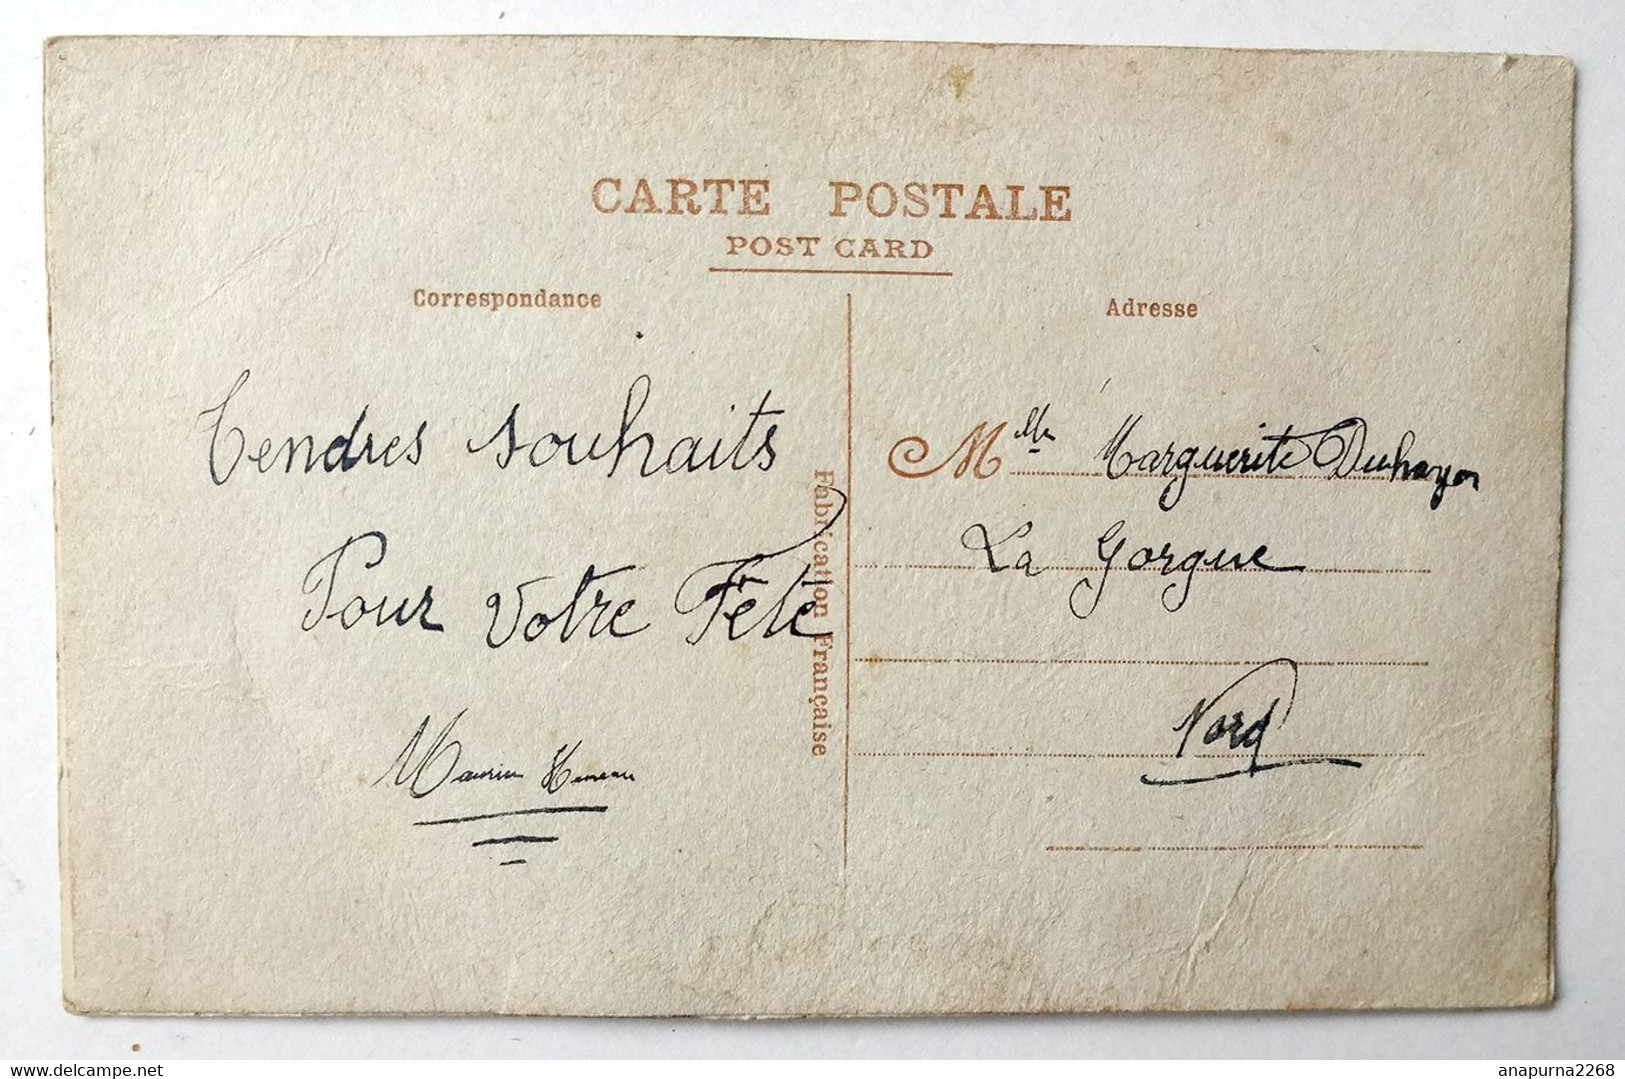 CARTE POSTALE
POST CARD
Correspondance
Adresse
Tendres souhaits
Pour Votre Fête
Maurice
Fabrication Française
Mlle Marguerite Duhayon
La Gorgue
Nord
delcampe.net
anapurna2268